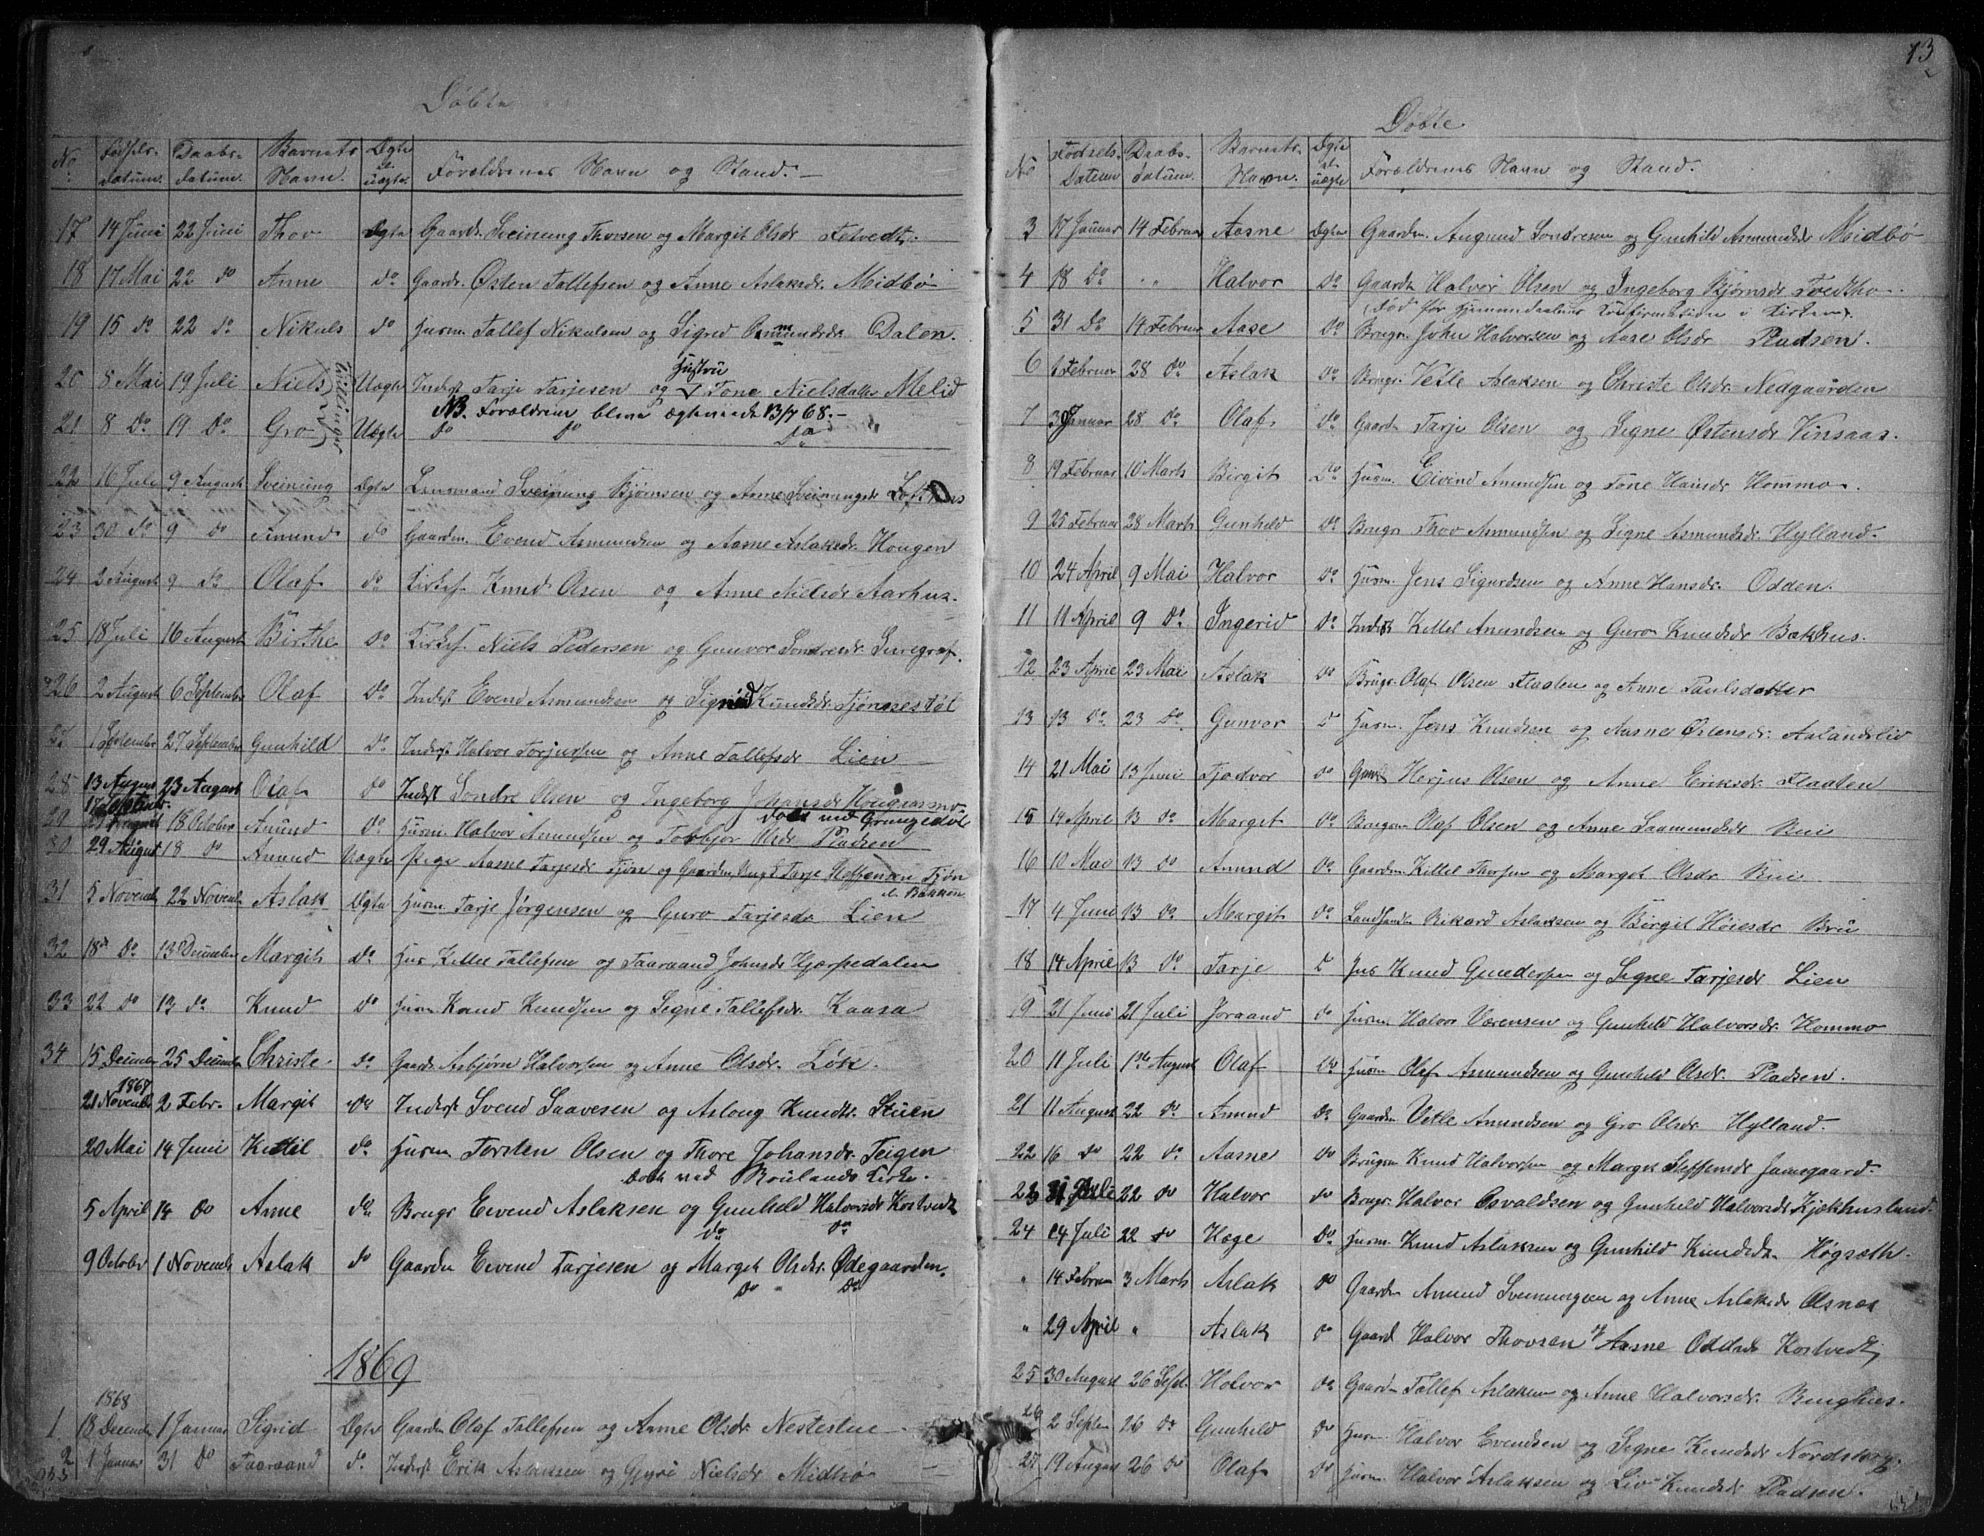 Döbte
No Födsels- Datum. Daabs- datum. Barnets Navn. Ægte el. uægte Forældrenes Navn og Stand.
17 14 Juni 22 Juni Thov Ægte Gaardb. Sveinung Thovsen og Margit Olsdr
18 17 Mai 22 do Anne do Gaardb. Østen Tallefsen og Anne Aslaksdr. Midbö
19 15 do 22 do Nikuls do Husm. Tallef Nikulsen og Sigrid Dalen.
Hustru
20 8 Mai 19 Juli Niels Tvillinger Uægte Inderst Tarje Tarjesen og Tone Nielsdatter Melid
NB. Forældrene bleve ægteviede 13/7 68.
21 8 do 19 do Gro Uægte do do do
22 16 Juli 9 August Sveinung Ægte Lensmand Sveinung Bjørnsen og Anne Sveinungsdr
23 30 do 9 do Amund do Gaardm. Evend Asmundsen og Aasne Aslaksdr. Hougen
24 2 August 9 do Olaf do Knud Olsen og Anne Nielsdr Aarhus.
25 18 Juli 16 August Birthe do Niels Pedersen og Gunvor Sondresdr
26 2 August 6 September Olaf do Inderst Evend Asmundsen og Sigrid Knudsdr.
27 1 September 27 September Gunhild do Inderst Halvor Torjussen og Anne Tallefsdr Lien
28 13 August 23 August Olaf do Inderst Sondre Olsen og Ingeborg Johansdr Hougannmo.
Døbt ved Grungedal
29 18 October Amund do Husm Halvor Amundsen og Torbjør Olsdr Pladsen
30 29 August 18 do Amund Uægte Pige Aasne Tarjesdr Tjön og Gaardm. Ungk. Tarje Steffensen Tjön
el. Bakken
31 5 Novemb 22 Novemb Aslak Ægte Husm Tarje Jörgensen og Guro Tarjesdr Lien
32 18 do 13 December Margit do Hus Kittel Tallefsen og Taaraand Johnsdr Kjærpedalen
33 22 do 13 do Knud do Husm Knud Knudsen og Signe Tallefsdr. Kaasa
34 15 December 25 December Christe do Gaardb. Asbjörn Halvorsen og Anne Olsdr. Lök.
1867
21 Novemb 2 Febr. Margit do Inderst Svend Saavesen og Aslaug Knudsdr. Stuen
20 Mai 14 Juni Kittil do Husm Torsten Olsen og Thore Johansdr. Teigen
Döbt ved Röulands Kirke.
5 April 14 do Anne do Brugr Eivend Aslaksen og Gunhild Halvorsdr Kostvedt
do do
9 October 1 Novemb Aslak do Gaardm Eivend Tarjesen og Margit Olsdr. Ødegaarden.
do " do
1869
1868
1. 18 December 1 Januar Sigrid Ægte Gaardm Olaf Tallefsen og Anne Olsdr Nestestue
2 1 Januar 31 do Taaraand do Inderst Erik Aslaksen og Gyro Nielsdr Midbö
13
Döbte
No Födsels- Datum Daabs- datum. Barnets Navn. Ægte el. uægte Forældrenes Navn og Stand.
3 17 Januar 14 Februar Aasne Ægte Gaardm. Augund Sondresen og Gunhild Asmundsdr Midbö
4 18 do " " Halvor do Gaardb Halvor Olsen og Ingeborg Bjørnsdr Tvedtho
5 31 do 14 Februar Aase do Brugr. John Halvorsen og Aase Olsdr Pladsen.
6 6 Februar 28 do Aslak do Brugr. Vetle Aslaksen og Christe Olsdr. Nedgaarden
7 30 Januar 28 do Olaf do Gaardb Tarje Olsen og Signe Østensdr Vinsaas.
8 19 Februar 10 Marts Birgit do Husm. Eivind Amundsen og Tone Hansdr Hommo.
9 25 Februar 28 Marts Gunhild do Brugr Thov Asmundsen og Signe Asmundsdr. Hylland.
10 24 April 9 Mai Halvor do Husm. Jens Sigurdsen og Anne Hansdr. Odden.
11 11 April 9 do Ingerid do Inderst Kittel Amundsen og Guro Knudsdr Bakhus.
12 23 April 23 Mai Aslak do Brugr. Olaf Olsen Flaaten og Anne Paulsdatter
13 13 do 23 do Gunvor do Husm. Jens Knudsen og Aasne Østensdr. Aslandslid
14 21 Mai 13 Juni Tjodvor do Herjus Olsen og Anne Eriksdr. Flaaten
15 14 April 13 do Margit do Brugm Olaf Olsen og Anne Saamundsdr Rui
16 10 Mai 13 do Amund do Gaardm Kittel Thorsen og Margit Olsdr Rui
17 4 Juni 13 do Margit do Rikard Aslaksen og Birgit Höiesdr Bru
18 14 April 13 do Tarje do Hus Knud Gundersen og Signe Tarjesdr Lien
19 21 Juni 21 Juli Joraand do Husm Halvor Værensen og Gunhild Halvorsdr. Hommo
20 11 Juli 1ste August Olaf do Husm Olaf Asmundsen og Gunhild Olsdr. Pladsen.
21 11 August 22 do Amund do Gaardm Vetle Amundsen og Gro Olsdr Hylland.
22 16 do 22 do Aasne do Brugm Knud Halvorsen og Margit Steffensdr Jamsgaard.
23 31 Juli 22 do Halvor do Brugr. Halvor Osvaldsen og Gunhild Halvorsdr Kjækhusland.
24 24 Juli 22 do Hæge do Husm. Knud Aslaksen og Gunhild Knudsdr. Högsæth.
" 14 Februar 3 Marts Aslak do Gaardm Amund Sveinungsen og Anne Aslaksdr Olsnes
" 29 April " Aslak do Gaard Halvor Thovsen og Aasne Oddsdr Kostvedt
25 30 August 26 Sept. Halvor do Gaardm Tallef Aslaksen og Anne Halvorsdr. Bunghus.
26 2 Septbr 26 do Gunhild do Husm. Halvor Evendsen og Signe Knudsdr Nordskog.
27 19 August 26 do Olaf do Husm. Halvor Aslaksen og Liv Knudsdr Pladsen.